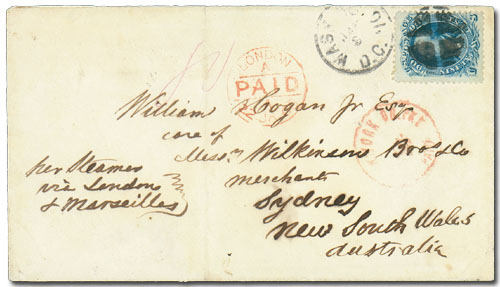 WASH
D.C.
LONDON
PAID
William Hogan Jr Esqr
care of
Messrs Wilkinson Bros & Co
merchants
Sydney
New South Wales
Australia
per Steamer
via London
& Marseilles